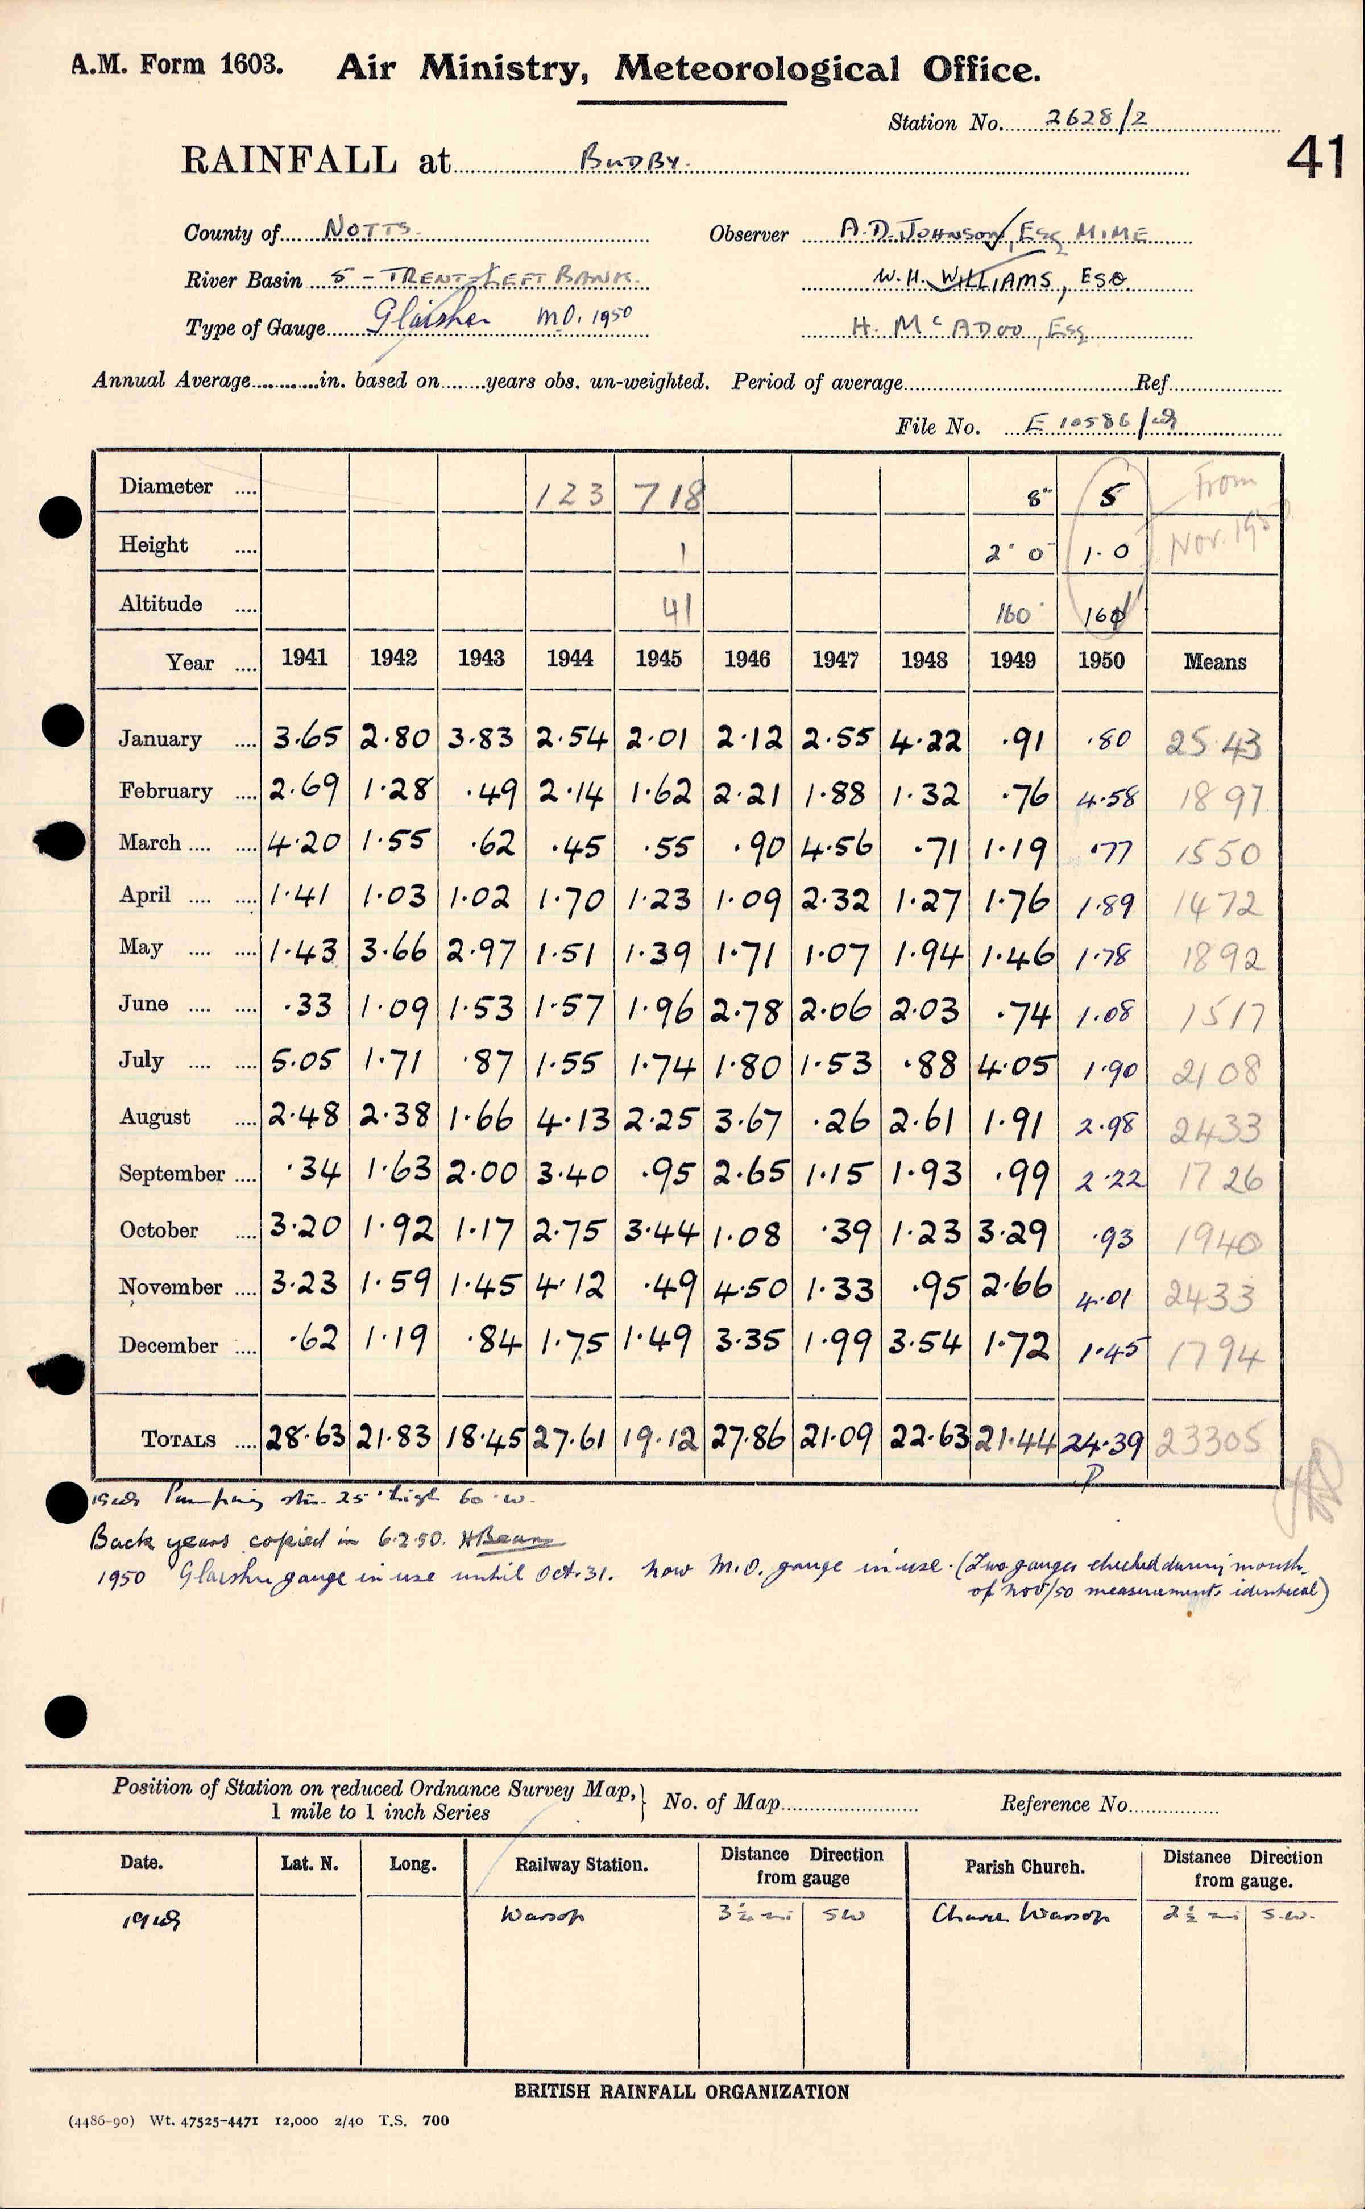 A.M. Form 1603. Air Ministry, Meteorological Office.
Station No. 2628/2
41
RAINFALL at BUDBY.
County of NOTTS. Observer A.D. JOHNSON, ESQ M.I.M.E
River Basin 5 - TRENT-LEFT BANK. W.H. WILLIAMS, ESQ.
Type of Gauge Glaisher M.O. 1950 H. McADOO, Esq
Annual Average in. based on years obs. un-weighted. Period of average Ref
File No. E 10586/
Diameter 123 718 8" 5 From
Height 1 2' 0" 1.0 Nov. 1950
Altitude 41 160' 160'
Year 1941 1942 1943 1944 1945 1946 1947 1948 1949 1950 Means
January 3.65 2.80 3.83 2.54 2.01 2.12 2.55 4.22 .91 .80 25.43
February 2.69 1.28 .49 2.14 1.62 2.21 1.88 1.32 .76 4.58 1897
March 4.20 1.55 .62 .45 .55 .90 4.56 .71 1.19 .77 1550
April 1.41 1.03 1.02 1.70 1.23 1.09 2.32 1.27 1.76 1.89 1472
May 1.43 3.66 2.97 1.51 1.39 1.71 1.07 1.94 1.46 1.78 1892
June .33 1.09 1.53 1.57 1.96 2.78 2.06 2.03 .74 1.08 1517
July 5.05 1.71 .87 1.55 1.74 1.80 1.53 .88 4.05 1.90 2108
August 2.48 2.38 1.66 4.13 2.25 3.67 .26 2.61 1.91 2.98 2433
September .34 1.63 2.00 3.40 .95 2.65 1.15 1.93 .99 2.22 1726
October 3.20 1.92 1.17 2.75 3.44 1.08 .39 1.23 3.29 .93 1940
November 3.23 1.59 1.45 4.12 .49 4.50 1.33 .95 2.66 4.01 2433
December .62 1.19 .84 1.75 1.49 3.35 1.99 3.54 1.72 1.45 1794
TOTALS 28.63 21.83 18.45 27.61 19.12 27.86 21.09 22.63 21.44 24.39 23305
P
Pumping stn. 25' high 60' w.
Back years copied in 6.2.50. HBean
1950 Glaisher gauge in use until Oct. 31. now M.O. gauge in use. (Two gauges checked during month.
of Nov/50 measurements identical)
Position of Station on reduced Ordnance Survey Map, 1 mile to 1 inch Series } No. of Map Reference No.
Date. Lat. N. Long. Railway Station. Distance Direction from gauge Parish Church. Distance Direction from gauge.
Warsop SW Church Warsop 2½ mi S.W.
BRITISH RAINFALL ORGANIZATION
(4486-90) Wt. 47525-4471 12,000 2/40 T.S. 700